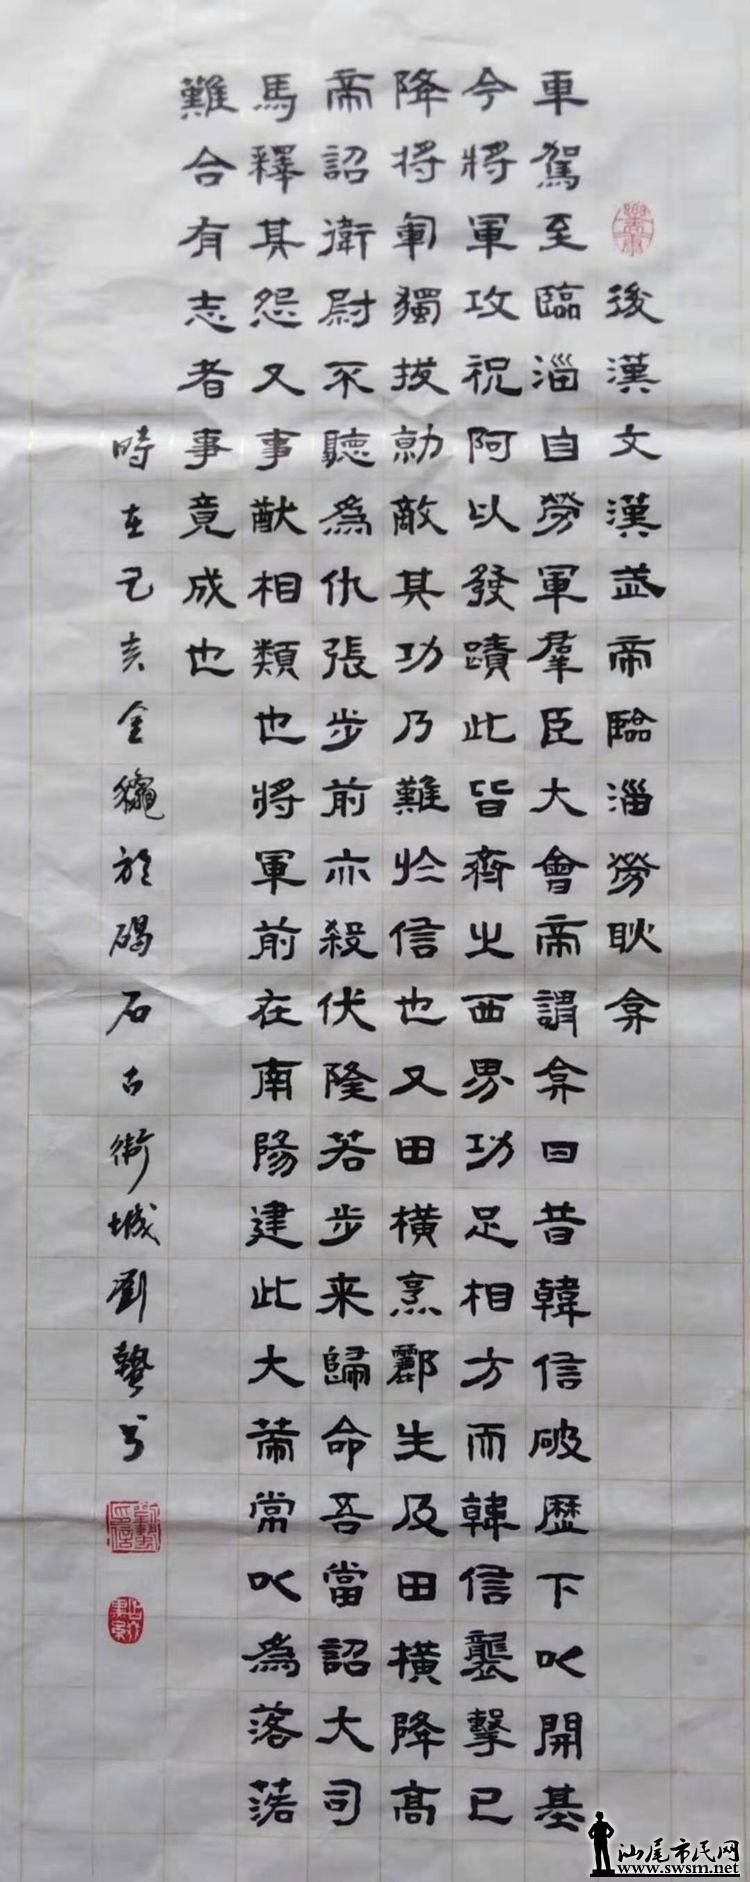 後漢文漢武帝臨淄勞耿弇
車駕至臨淄自勞軍羣臣大會帝謂弇曰昔韓信破歷下以開基
今將軍攻祝阿以發蹟此皆齊之西界功足相方而韓信襲擊已
降將軍獨拔勍敵其功乃難於信也又田橫烹酈生及田橫降高
帝詔衛尉不聽為仇張步前亦殺伏隆若步来歸命吾當詔大司
馬釋其怨又事猷相類也將軍前在南陽建此大策常以為落落
難合有志者事竟成也
時在己亥金龝於碣石古衛城劉書
汕尾市民网
www.swsm.net